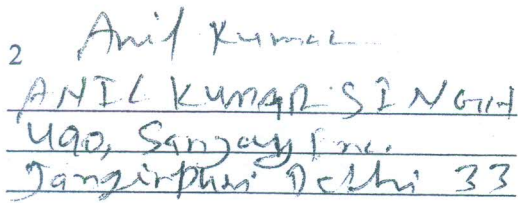 2 Anil Kumar
ANIL KUMAR SINGH
490, Sanjay
Jangirpuri Delhi 33